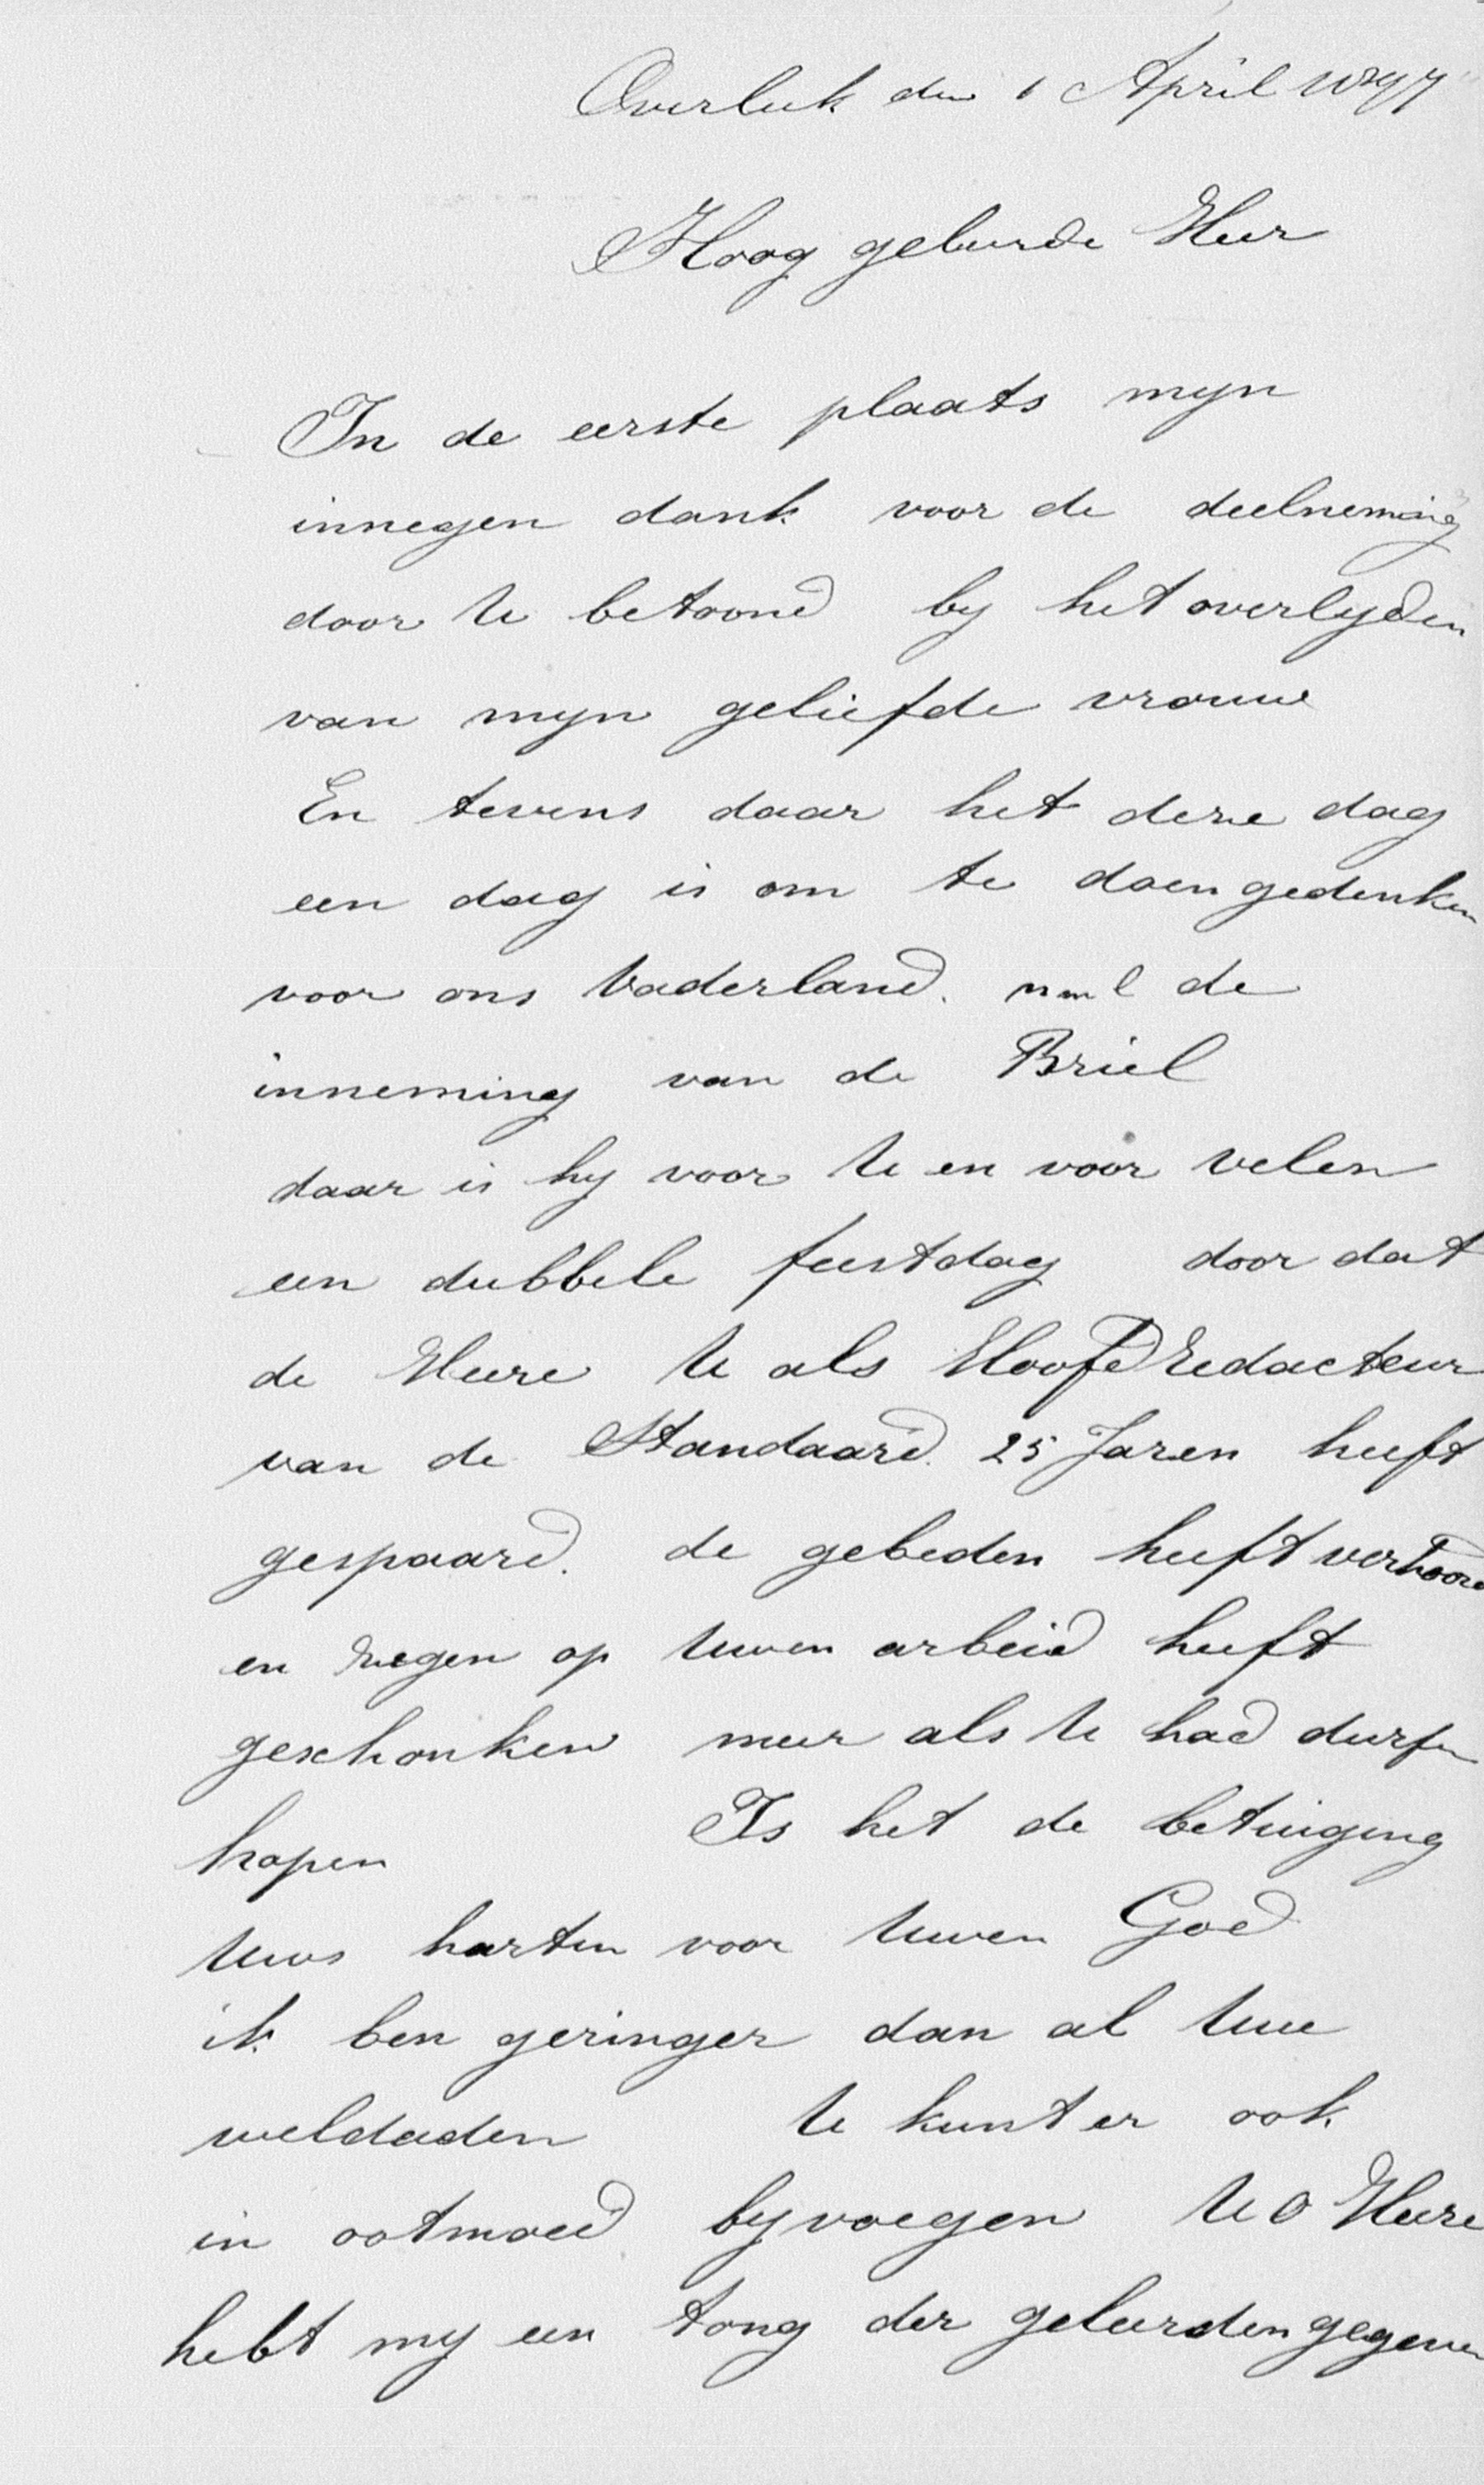 Overluk den 1 April 1897
Hoog geleerde Heer
In de eerste plaats myn
innegen dank voor de deelneming
door U betoond by het overlyden
van myn geliefde vrouw
En tevens daar het deze dag
een dag is om te doen gedenken
voor ons Vaderland. naml de
inneming van de Briel
daar is hy voor U en voor velen
een dubbele feestdag door dat
de Heere U als Hoofd redacteur
van de Standaard. 25 Jaren heeft
gespaard. de gebeden heeft verhoord
en zegen op Uwen arbeid heeft
geschonken meer als U had durfen
hopen Is het de betuiging
Uws harten voor Uwen God
ik ben geringer dan al Uwe
weldaden U kunt er ook
in ootmoed byvoegen U O Heere
hebt my een tong der geleerden gegeven